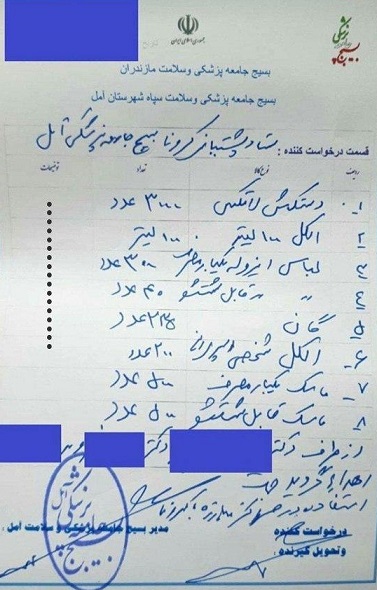 جمهوری اسلامی ایران
بسیج جامعه پزشکی
بسیج جامعه پزشکی وسلامت مازندران
بسیج جامعه پزشکی وسلامت سپاه شهرستان آمل
قسمت درخواست کننده : ستاد پشتیبانی کرونا بسیج جامعه پزشکی آمل
ردیف نوع کالا تعداد توضیحات
۱- دستکش لاتکس ۳۰۰۰ عدد
۲ الکل ۱۰۰ لیتر ۱۰۰ لیتر
۳- لباس ایزوله یکبار مصرف ۳۰۰ عدد
۴ " " قابل شستشو ۴۰ عدد
۵- گان ۲۳۵ عدد
۶- الکل شخصی ۲۰۰ عدد
۷- ماسک یکبار مصرف ۵۰۰ عدد
۸- ماسک قابل شستشو ۵۰۰ عدد
از طرف دکتر دکتر
اهداء گردید جهت
استفاده در مبارزه با کرونا
درخواست کننده مدیر بسیج جامعه پزشکی و سلامت آمل :
وتحویل گیرنده :